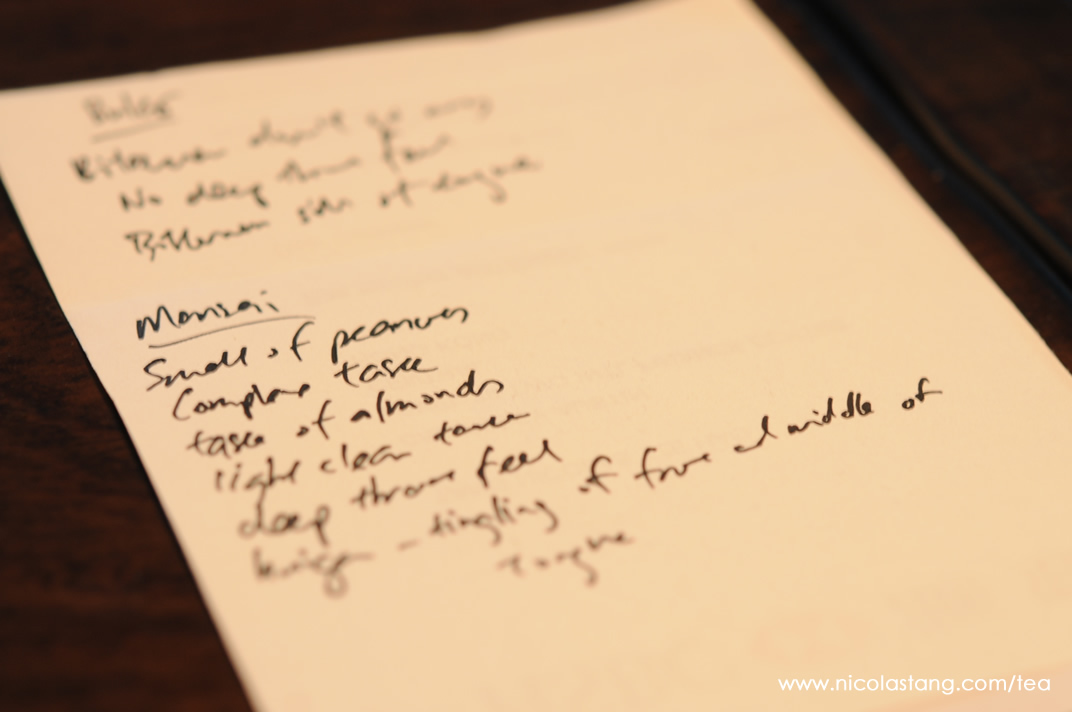 Bitterness don't go away
No deep throat feel
Bitterness side of tongue
Mansai
Smell of peanuts
Complex taste
taste of almonds
light clean taste
deep throat feel
- tingling of front and middle of
tongue
www.nicolastang.com/tea